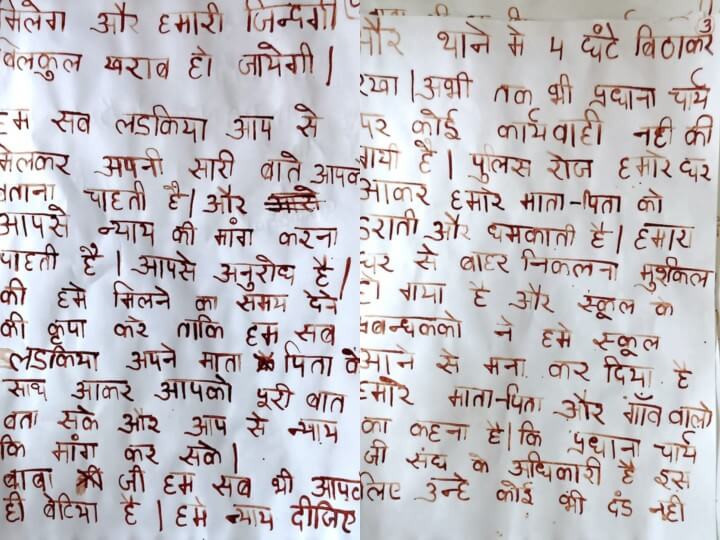 मिलेगा और हमारी जिन्दगी
बिलकुल खराब हो जायेगी |
हम सब लडकिया आप से
मिलकर अपनी सारी बाते आपको
बताना चाहती है | और
आपसे न्याय की मांग करना
चाहती है | आपसे अनुरोध है |
की हमे मिलने का समय देने
की कृपा करे ताकि हम सब
लडकिया अपने माता पिता के
साथ आकर आपको पूरी बात
बता सके और आप से न्याय
कि मांग कर सके |
बाबा जी हम सब भी आपकी
ही बेटिया है | हमे न्याय दीजिए
3
और थाने मे 4 घंटे बिठाकर
रखा | अभी तक भी प्रधाना चार्य
पर कोई कार्यवाही नही की
गयी है | पुलिस रोज हमारे घर
आकर हमारे माता-पिता को
डराती और धमकाती है | हमारा
घर से बाहर निकलना मुशकिल
हो गया है और स्कूल के
प्रबन्धकको ने हमे स्कूल
आने से मना कर दिया है
हमारे माता-पिता और गाँव वालो
का कहना है | कि प्रधाना चार्य
जी संघ के अधिकारी है इस
लिए उन्हे कोई भी दंड नही